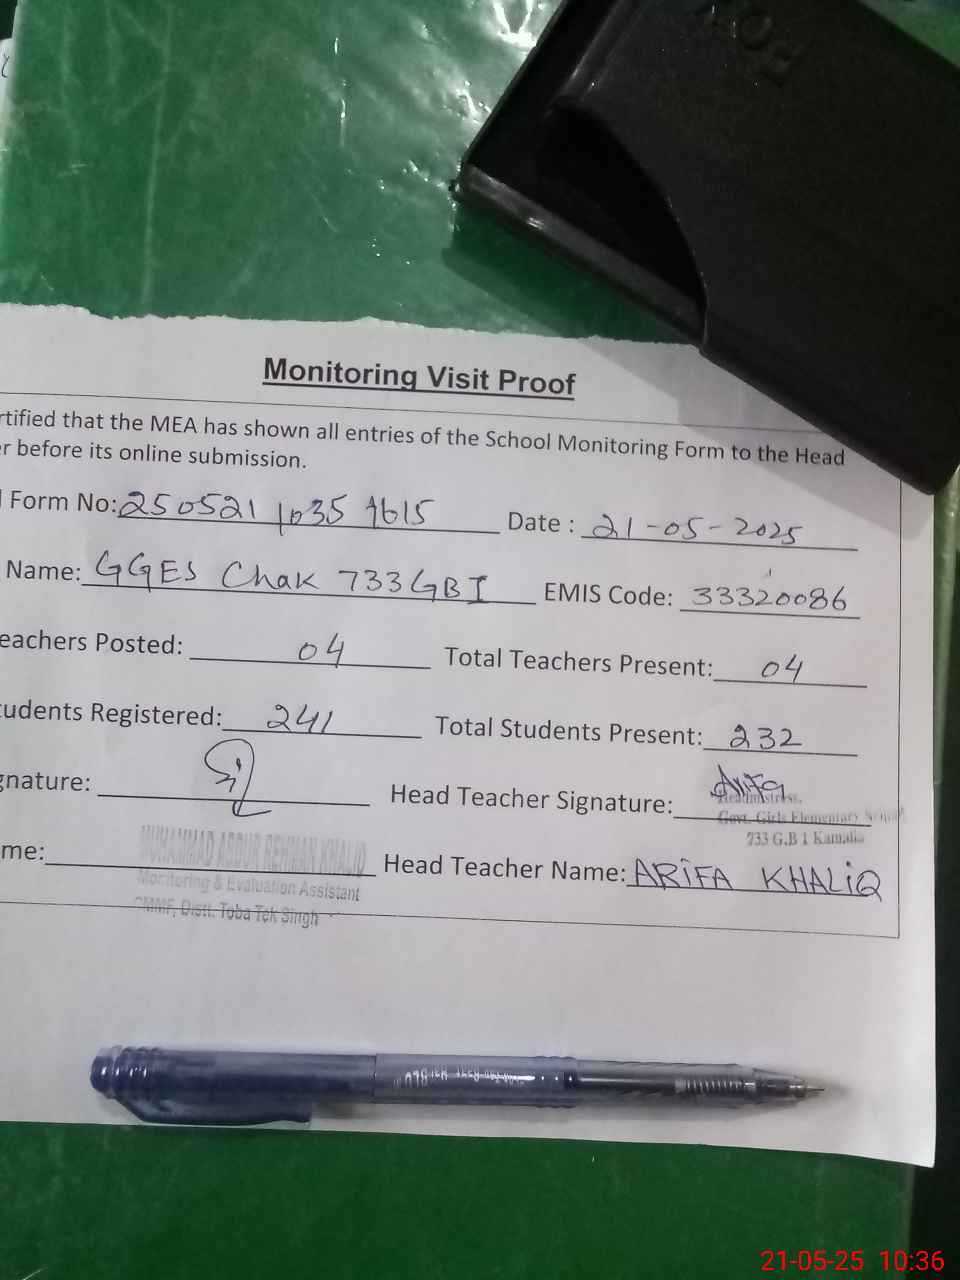 Monitoring Visit Proof
rtified that the MEA has shown all entries of the School Monitoring Form to the Head
r before its online submission.
Form No: 250521 1035 4615 Date : 21-05-2025
Name: GGES Chak 733GB I EMIS Code: 33320086
eachers Posted: 04 Total Teachers Present: 04
tudents Registered: 241 Total Students Present: 232
gnature: Head Teacher Signature: Arifa
Headmistress,
Govt. Girls Elementary School
733 G.B 1 Kamalia
me: MUHAMMAD ABDUR REHMAN KHALID Head Teacher Name: ARIFA KHALIQ
Monitoring & Evaluation Assistant
CMMF, Distt. Toba Tek Singh
21-05-25 10:36